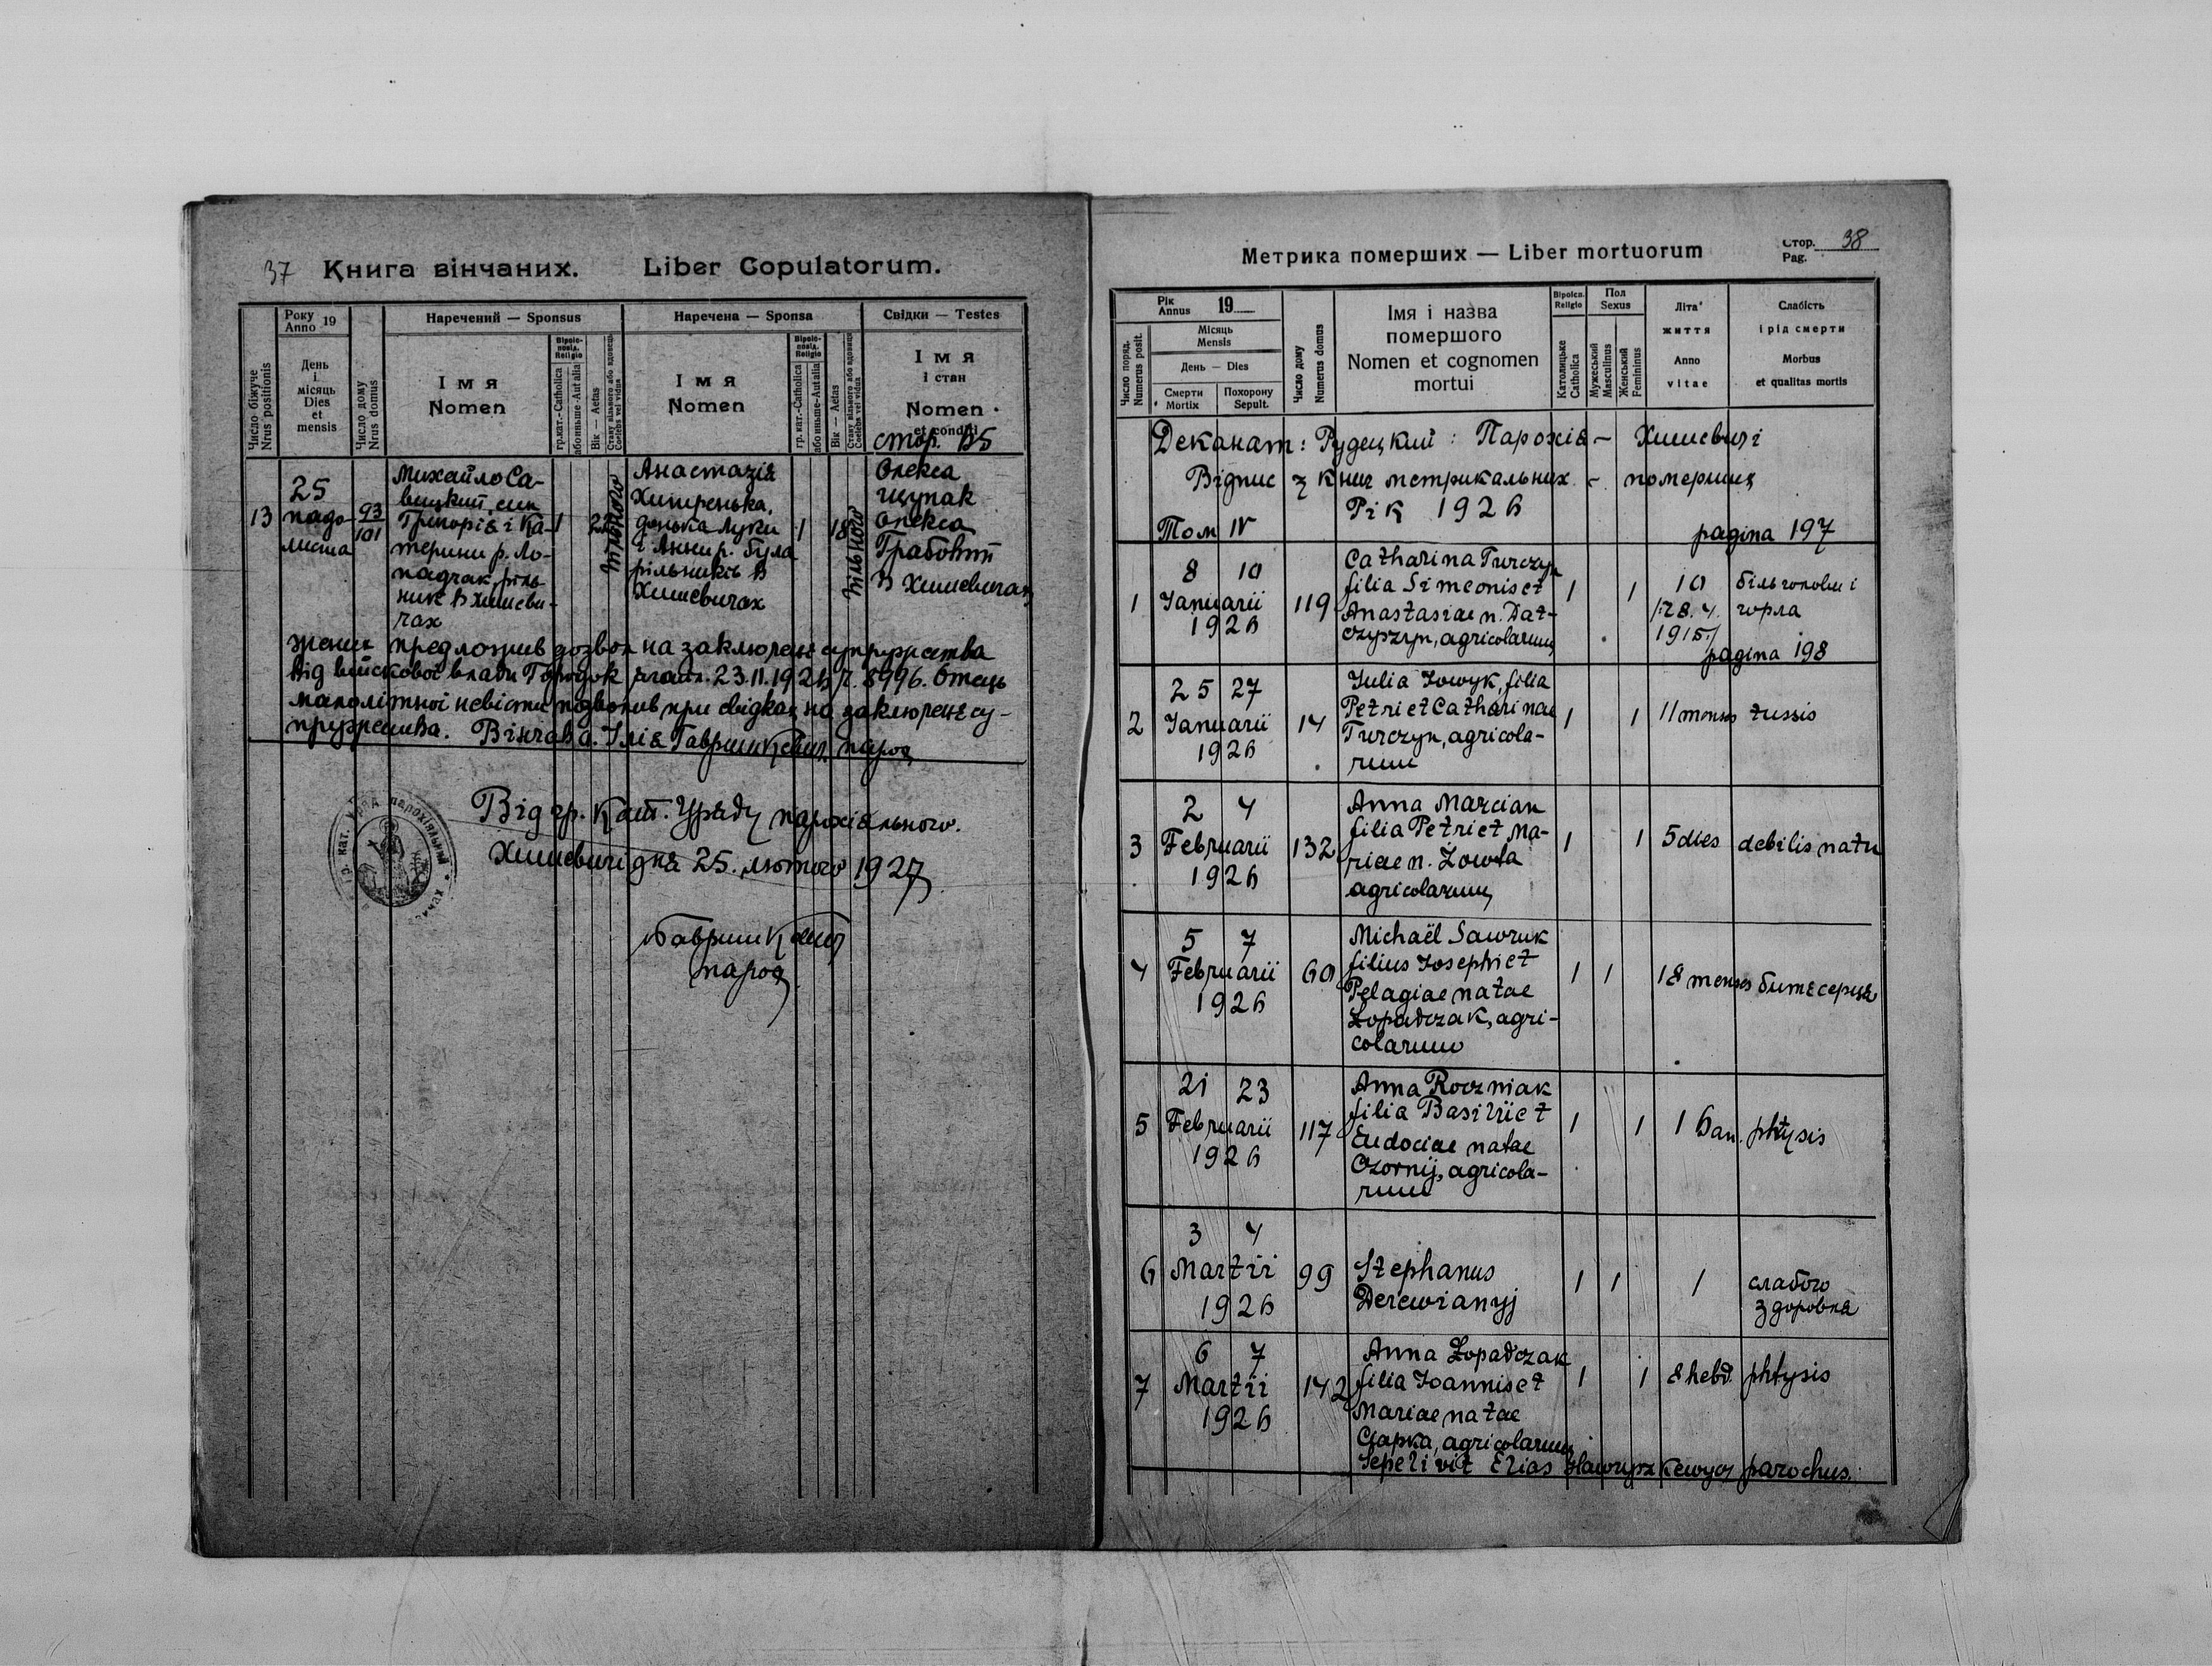 37 Книга вінчаних. Liber Copulatorum.
Число біжуче
Nrus positionis
Року
Anno 19
День
і
місяць
Dies
et
mensis
Число дому
Nrus domus
Наречений — Sponsus
Імя
Nomen
Віроіс-
повід.
Religio
гр. кат.-Catholica
або иньше-Aut alia
Вік — Aetas
Стану вільного або вдовець
Coelebs vel viduus
Наречена — Sponsa
Імя
Nomen
Віроіс-
повід.
Religio
гр. кат.-Catholica
або иньше-Aut alia
Вік — Aetas
Стану вільного або вдовиця
Coelebs vel vidua
Свідки — Testes
Імя
і стан
Nomen
et conditi
стор. 55
13
25
падо-
листа
93
101
Михайло Са-
вицкий, син
Григорія і Ка-
терини р. Ло-
падчак, ріль-
ник в Хишеви-
чах
1
вільного
Анастазія
донька Луки
і Анни р. Була
рільників в
Хишевичах
1
18
вільного
Олекса
Щупак
Олекса
Грабовий
в Хишевичах
жених предложив дозвол на заключенє супружества
від війскової влади Городок 23.11.1926 ч. 8996. Отець
малолітної невісти позволив при свідках на заключенє су-
пружества. Вінчав о. Ілія Гавришкевич, парох
Від гр. кат. Уряду парохіяльного.
Хишевичі дня 25. лютого 1927
Гавришкевич
парох
Метрика померших — Liber mortuorum
Стор. 38
Pag.
Число поряд.
Numerus posit.
Рік 19
Annus
Місяць
Mensis
День — Dies
Смерти
Mortix
Похорону
Sepult.
Число дому
Numerus domus
Імя і назва
помершого
Nomen et cognomen
mortui
Віроісп.
Religio
Католицьке
Catholica
Пол
Sexus
Мужеський
Masculinus
Женський
Femininus
Літа
життя
Anno
vitae
Слабість
і рід смерти
Morbus
et qualitas mortis
Деканат: Рудецкий : Парохія - Хишевичі
Відпис з книг метрикальних - померших
Рік 1926
Том IV pagina 197
1
8 10
Januarii
1926
119
Catharina Turczyn
filia Simeonis et
Anastasiae n. Dat-
czyszyn, agricolarum
1 1
10
біль голови і
горла
pagina 198
2
25 27
Januarii
1926
14
Julia Jowyk, filia
Petri et Catharinae
Turczyn, agricola-
rum
1 1
11 menses
tussis
3
2 4
Februarii
1926
132
Anna Marcian
filia Petri et Ma-
riae n. Żowta
agricolarum
1 1
5 dies
debilis natu
4
5 7
Februarii
1926
60
Michaël Sawruk
filius Josephi et
Pelagiae natae
Łopadczak, agri-
colarum
1 1
18 menses
битє серця
5
21 23
Februarii
1926
117
Anna Roczniak
filia Basilii et
Eudociae natae
Czornij, agricola-
rum
1 1
1 6 an.
phtysis
6
3 4
Martii
1926
99
Stephanus
Derewianyj
1 1
1
слабого
здоровля
7
6 7
Martii
1926
142
Anna Łopadczak
filia Joannis et
Mariae natae
Czapka, agricolarum
1 1
8 hebd.
phtysis
Sepelivit Elias Hawryszkewycz parochus.